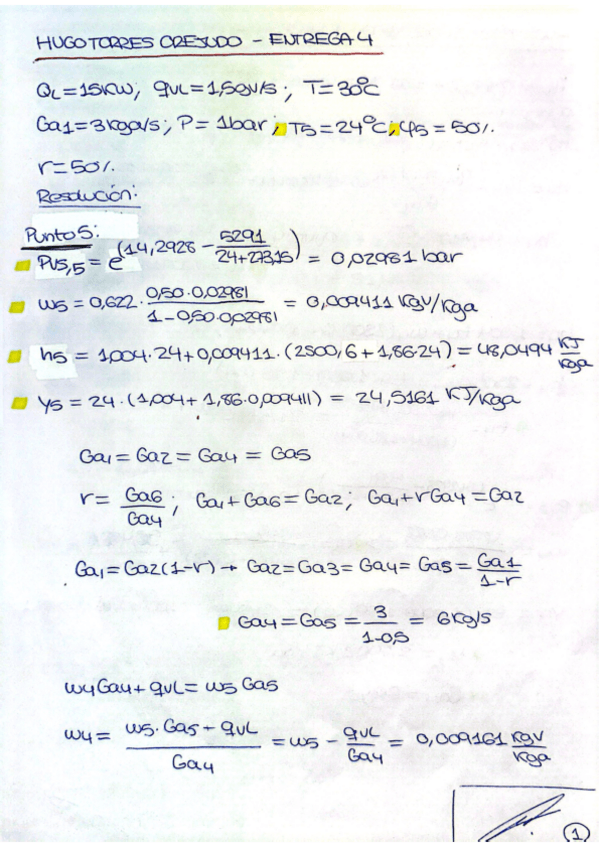 HUGO TORRES CREJUDO - ENTREGA 4
QL=15KW; qVL=1,5gv/s; T=30ºC
Ga1=3kga/s; P=1bar; T5=24ºC; φ5=50%
r=50%
Resolución:
Punto 5:
Pvs,5 = e^(14,2928 - 5291/(24+273,15)) = 0,02981 bar
w5 = 0,622 · (0,50·0,02981)/(1-0,50·0,02981) = 0,009411 Kgv/Kga
h5 = 1,004·24+0,009411·(2500,6+1,86·24) = 48,0494 KJ/Kga
y5 = 24·(1,004+1,86·0,009411) = 24,5161 KJ/Kga
Ga1 = Ga2 = Ga4 = Ga5
r = Ga6/Ga4; Ga1+Ga6=Ga2; Ga1+rGa4=Ga2
Ga1=Ga2(1-r) → Ga2=Ga3=Ga4=Ga5= Ga1/(1-r)
Ga4=Ga5 = 3/(1-0,5) = 6Kg/s
w4Ga4+qVL= w5 Ga5
w4= (w5·Ga5-qVL)/Ga4 = w5 - qVL/Ga4 = 0,009161 Kgv/Kga
1